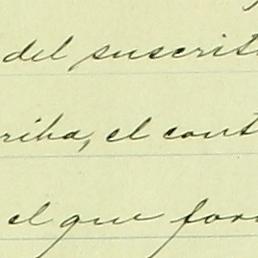 del suscrit
riba, el cont
el que for